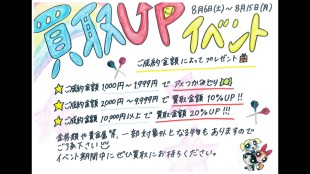 8月6日(土)～8月15日(月)
買取UPイベント
ご成約金額によってプレゼント
ご成約金額1,000円～1,999円で アメつかみどり
ご成約金額2,000円～9,999円で 買取金額10%UP!!
ご成約金額10,000円以上で 買取金額20%UP!!!
金券類や貴金属等、一部対象外となる場合もありますので
ご了承下さい
イベント期間中にぜひ買取にお持ちください。